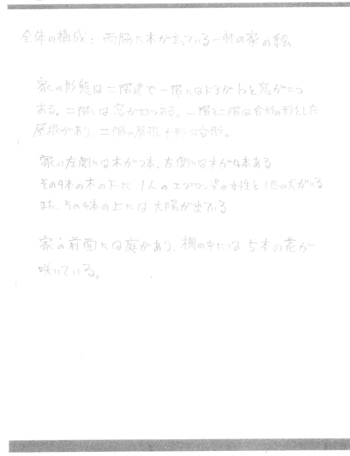 全体の構成：両脇に木が立っている一軒の家の絵
家の形態は二階建で一階にはドアが1つと窓が二つ
ある。二階には窓が四つある。一階と二階は台形の形をした
屋根があり、二階の屋根も形は台形。
家の左側には木が2本、右側には木が4本ある
その4本の木の下に1人の 女性と1匹の犬がいる
また、その4本の上には太陽が出ている
家の前面には庭があり、柵の中には5本の花が
咲いている。